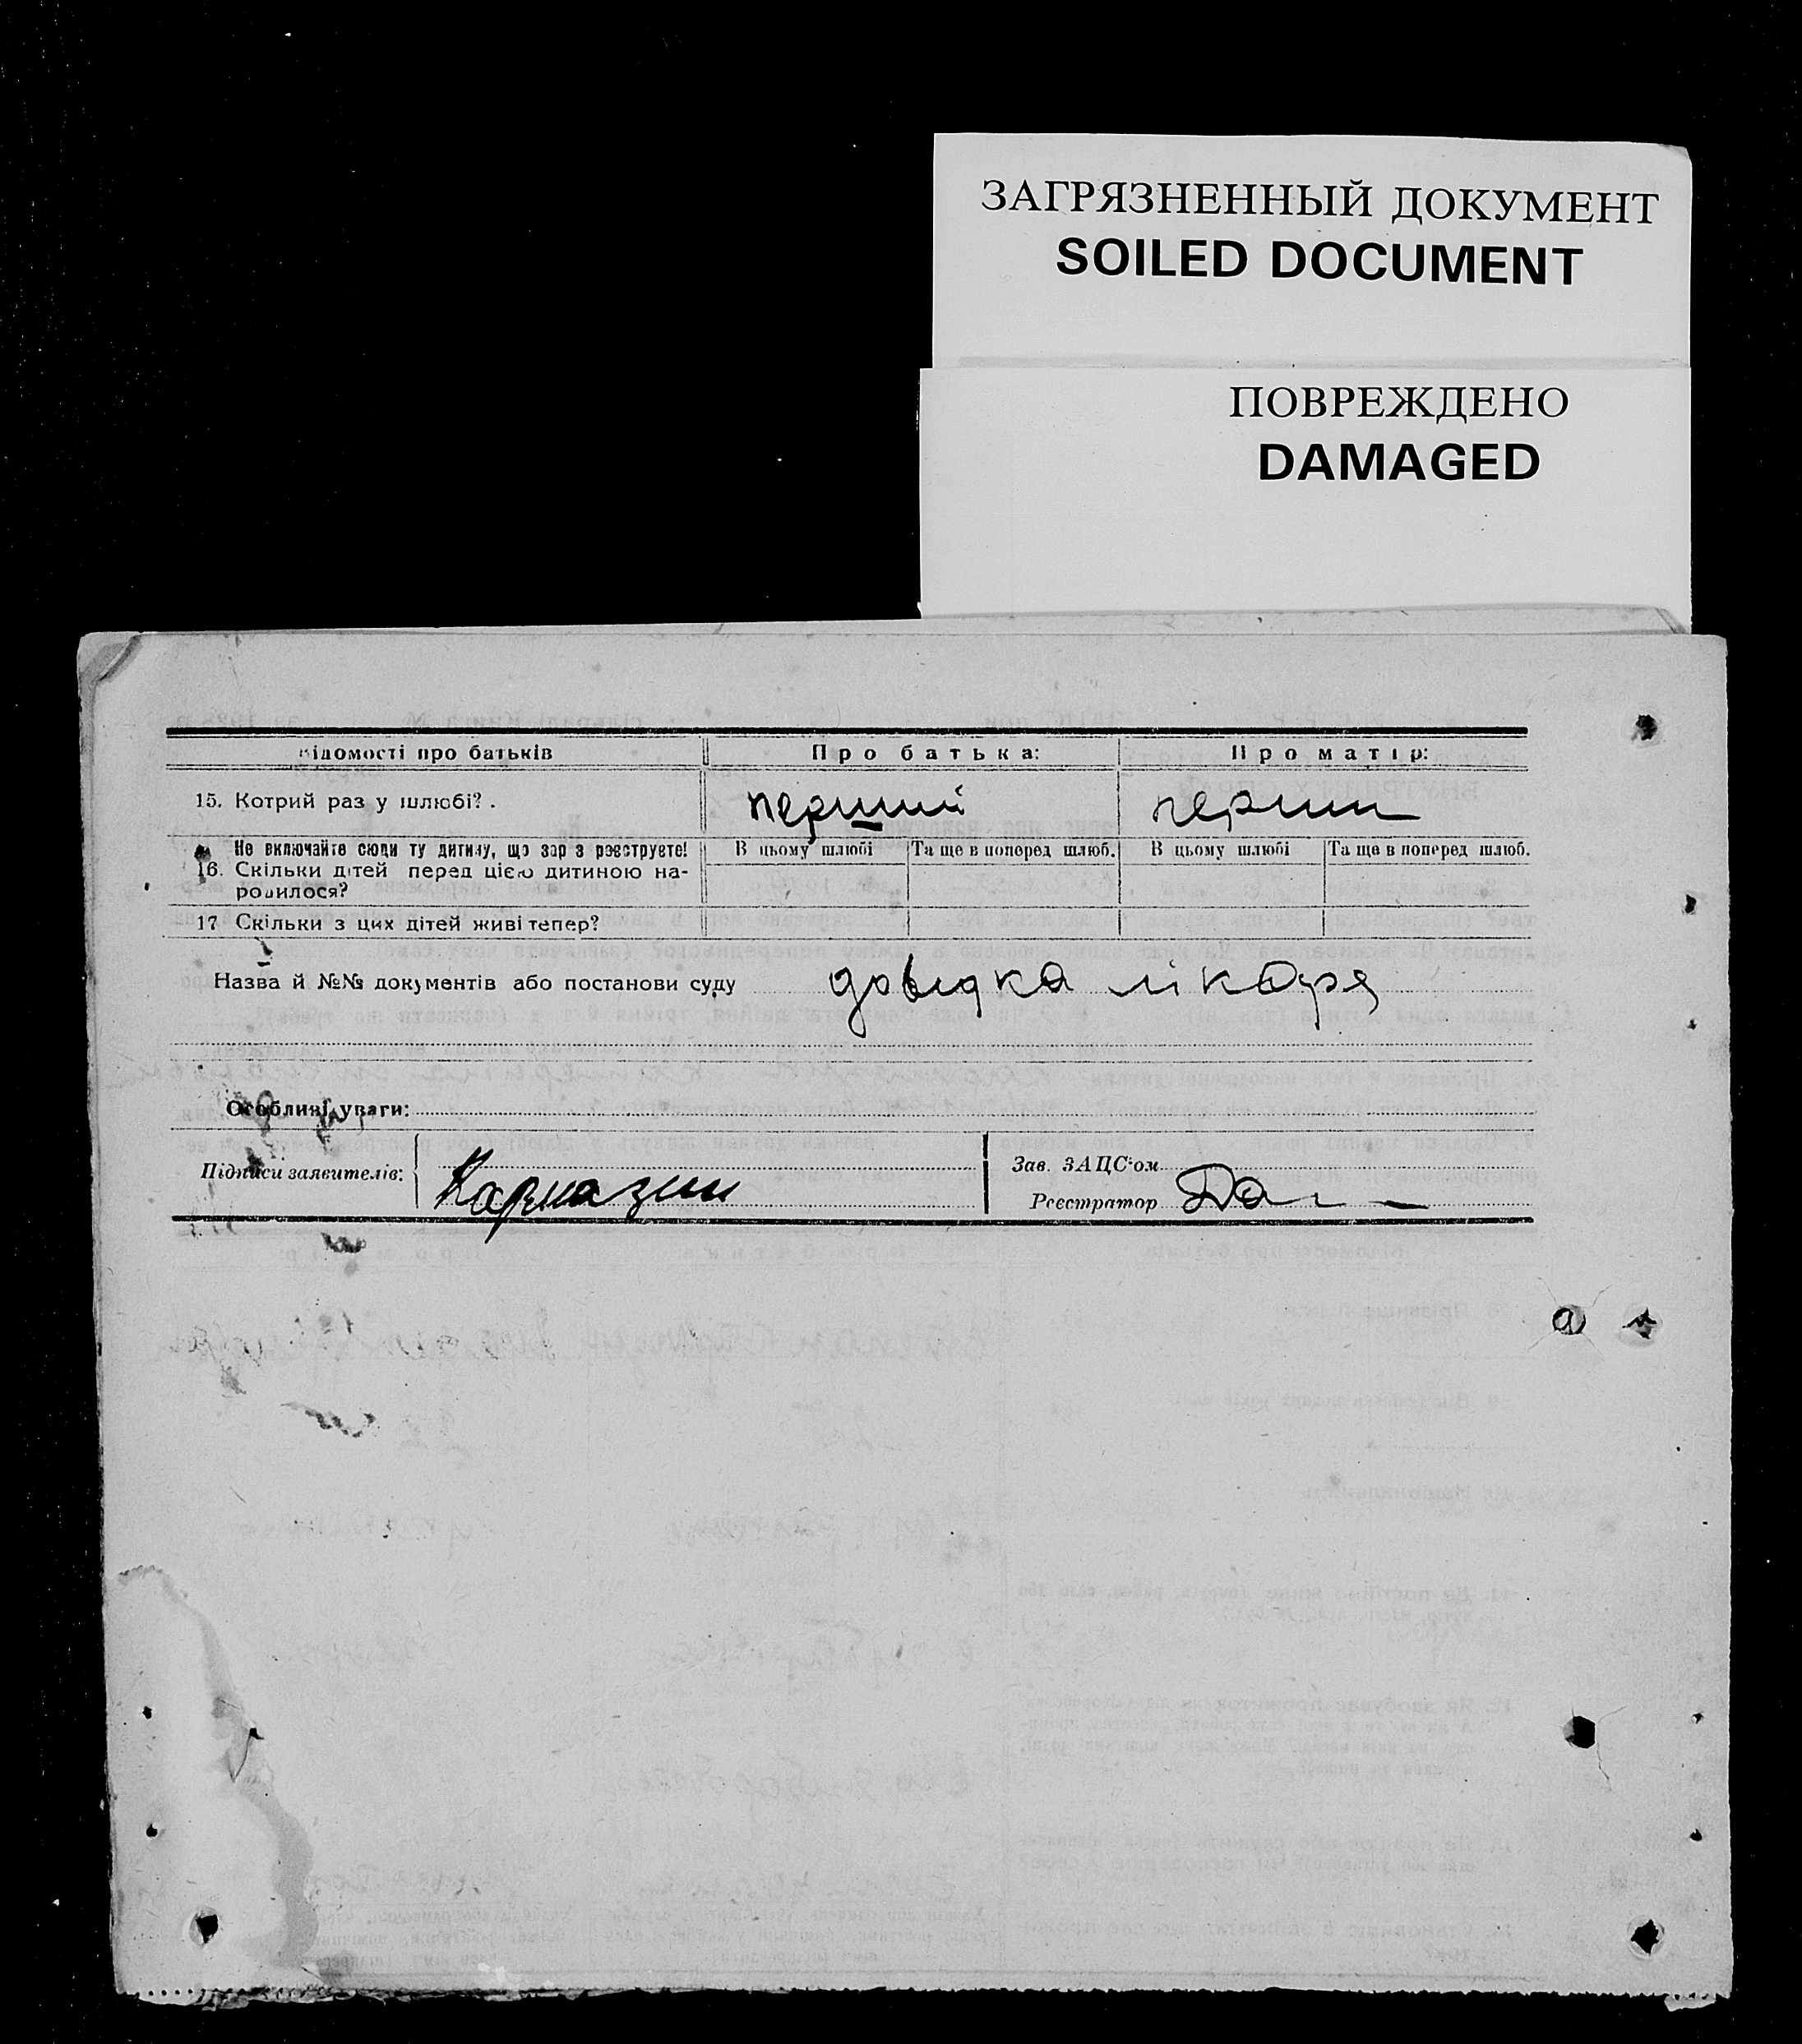 ЗАГРЯЗНЕННЫЙ ДОКУМЕНТ
SOILED DOCUMENT
ПОВРЕЖДЕНО
DAMAGED
Відомості про батьків Про батька: Про матір:
15. Котрий раз у шлюбі? . перший перший
Не включайте сюди ту дитину, що зараз реєструєте! В цьому шлюбі Та ще в поперед шлюб. В цьому шлюбі Та ще в поперед шлюб.
16. Скільки дітей перед цією дитиною на-
родилося?
17 Скільки з цих дітей живі тепер?
Назва й №№ документів або постанови суду довідка лікаря
Особливі уваги:
Підписи заявителів: Кармазин
Зав. ЗАЦС'ом
Реєстратор